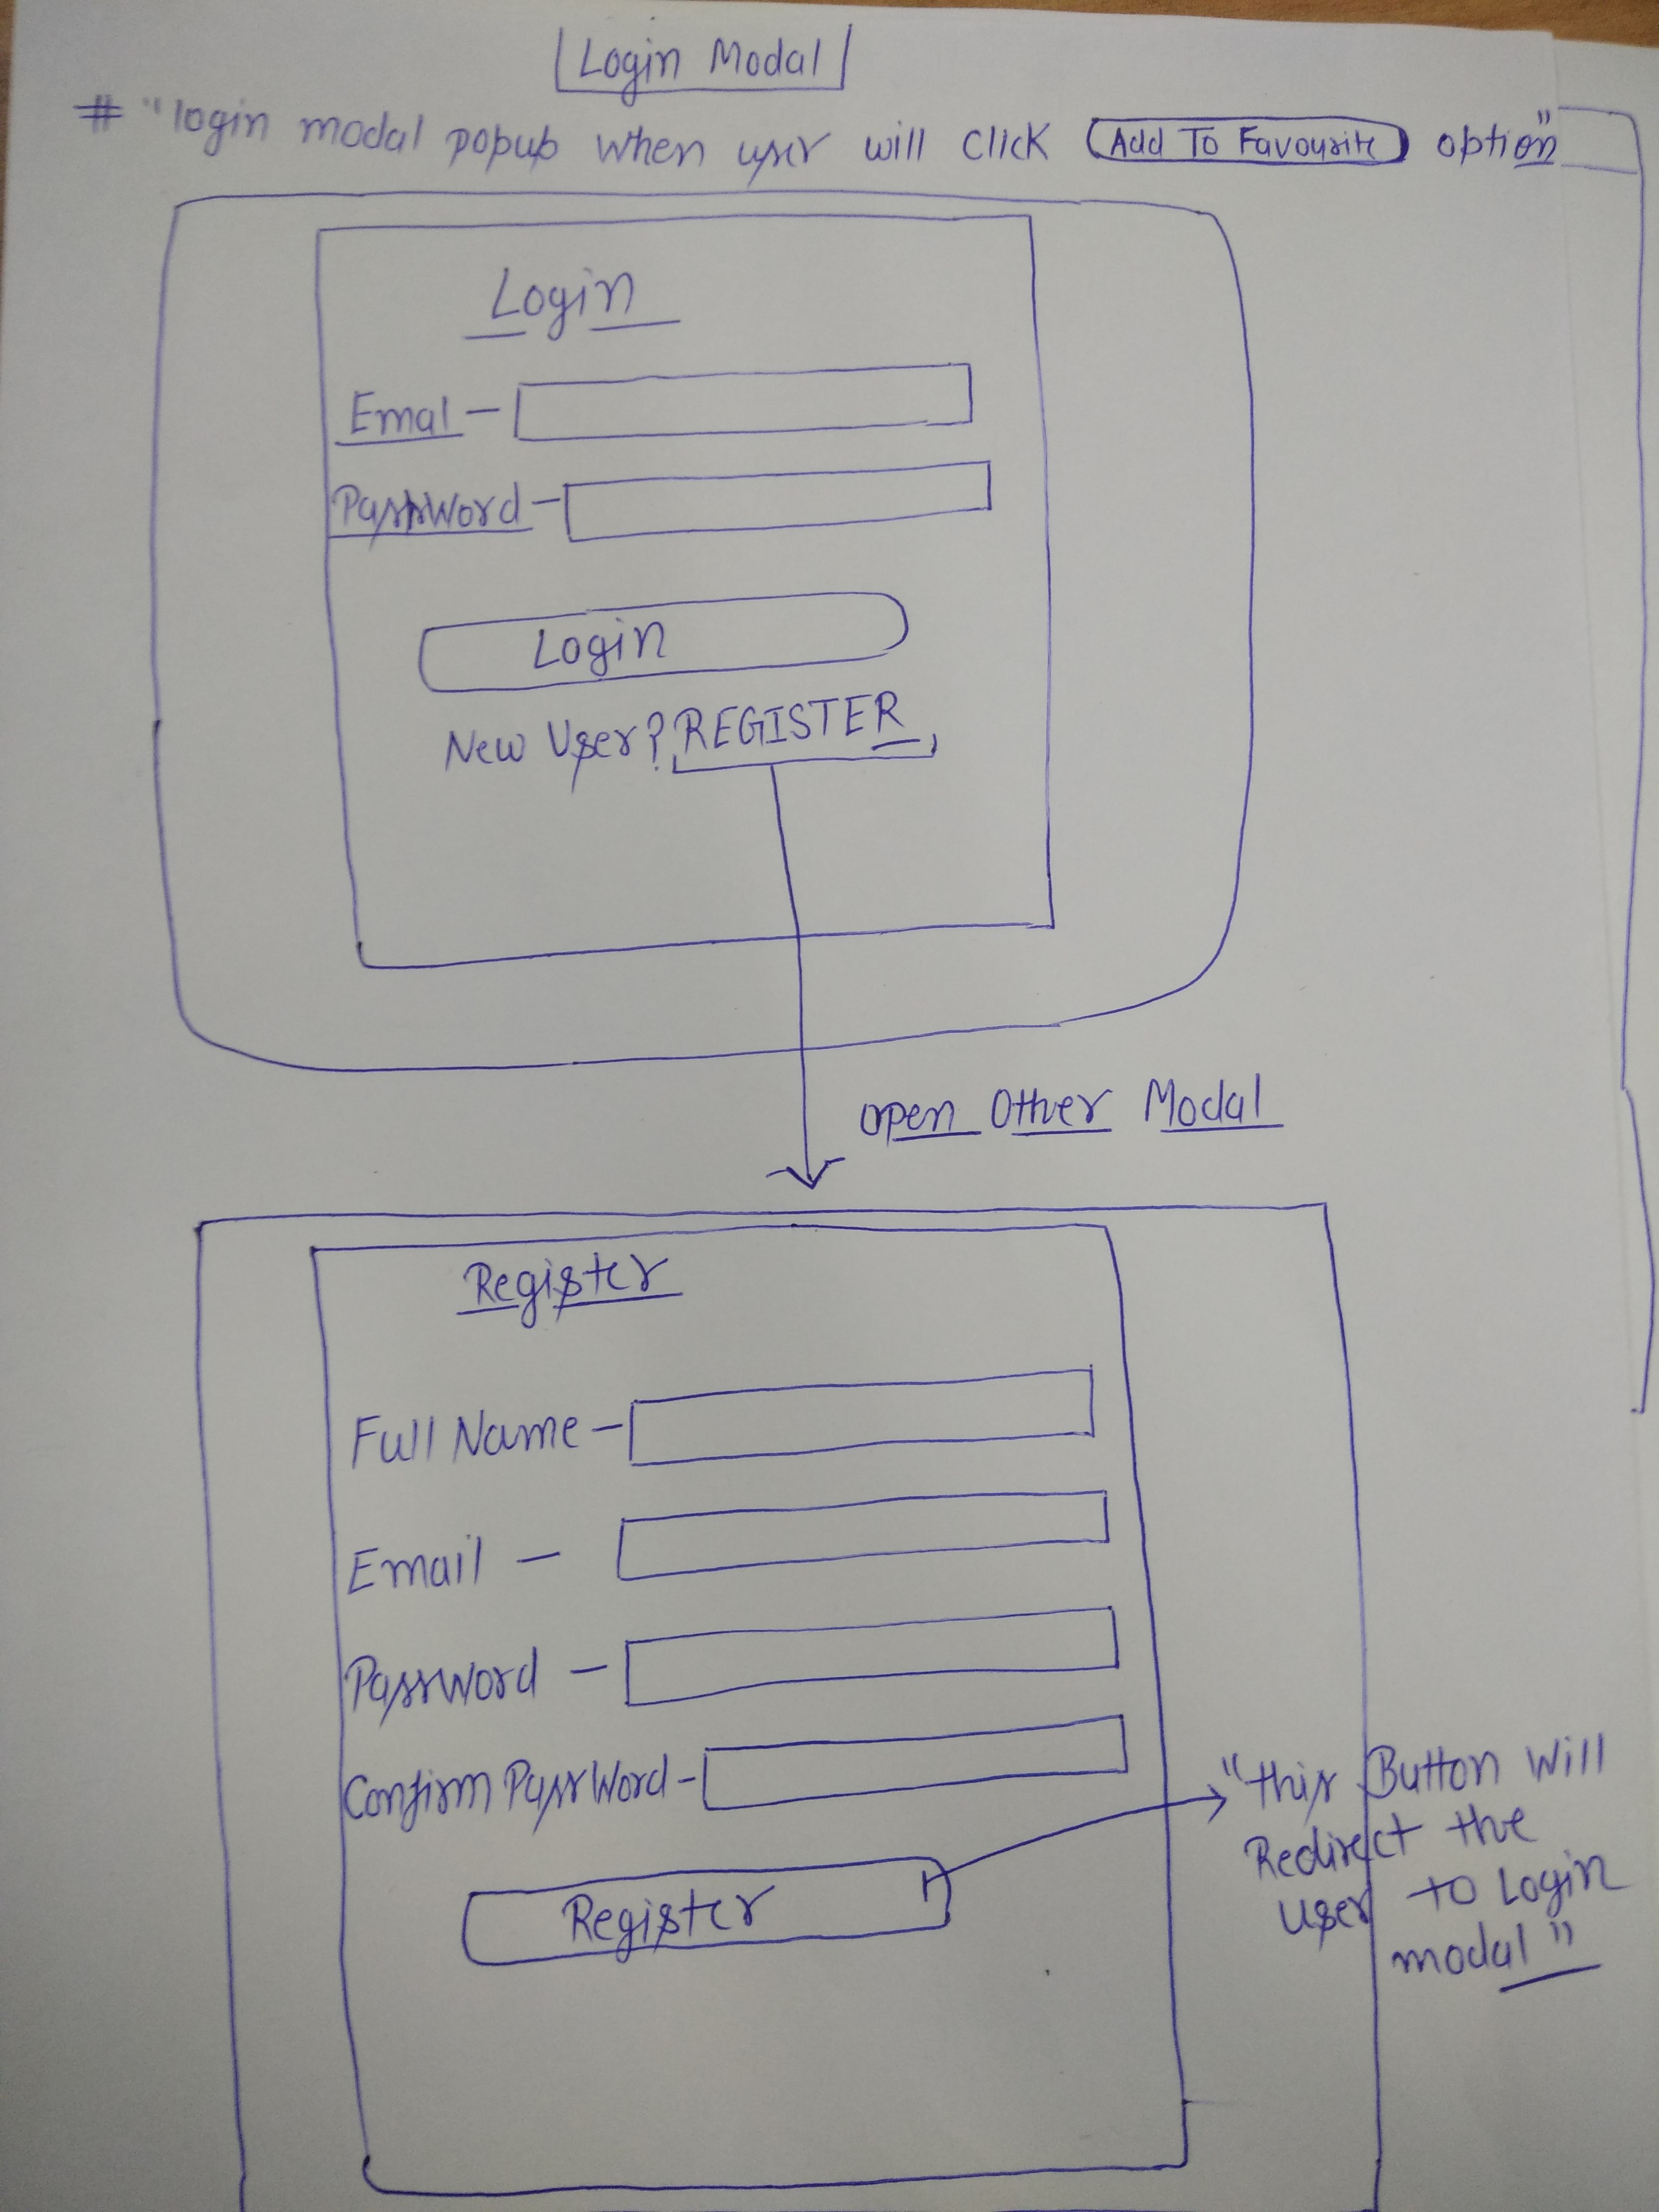 Login Modal
# "login modal popup when user will click Add To Favourite option"
Login
Emal -
Password -
Login
New User? REGISTER
open Other Modal
Register
Full Name -
Email -
Password -
Confirm PassWord -
Register
"this Button Will
Redirect the
user to Login
modal"